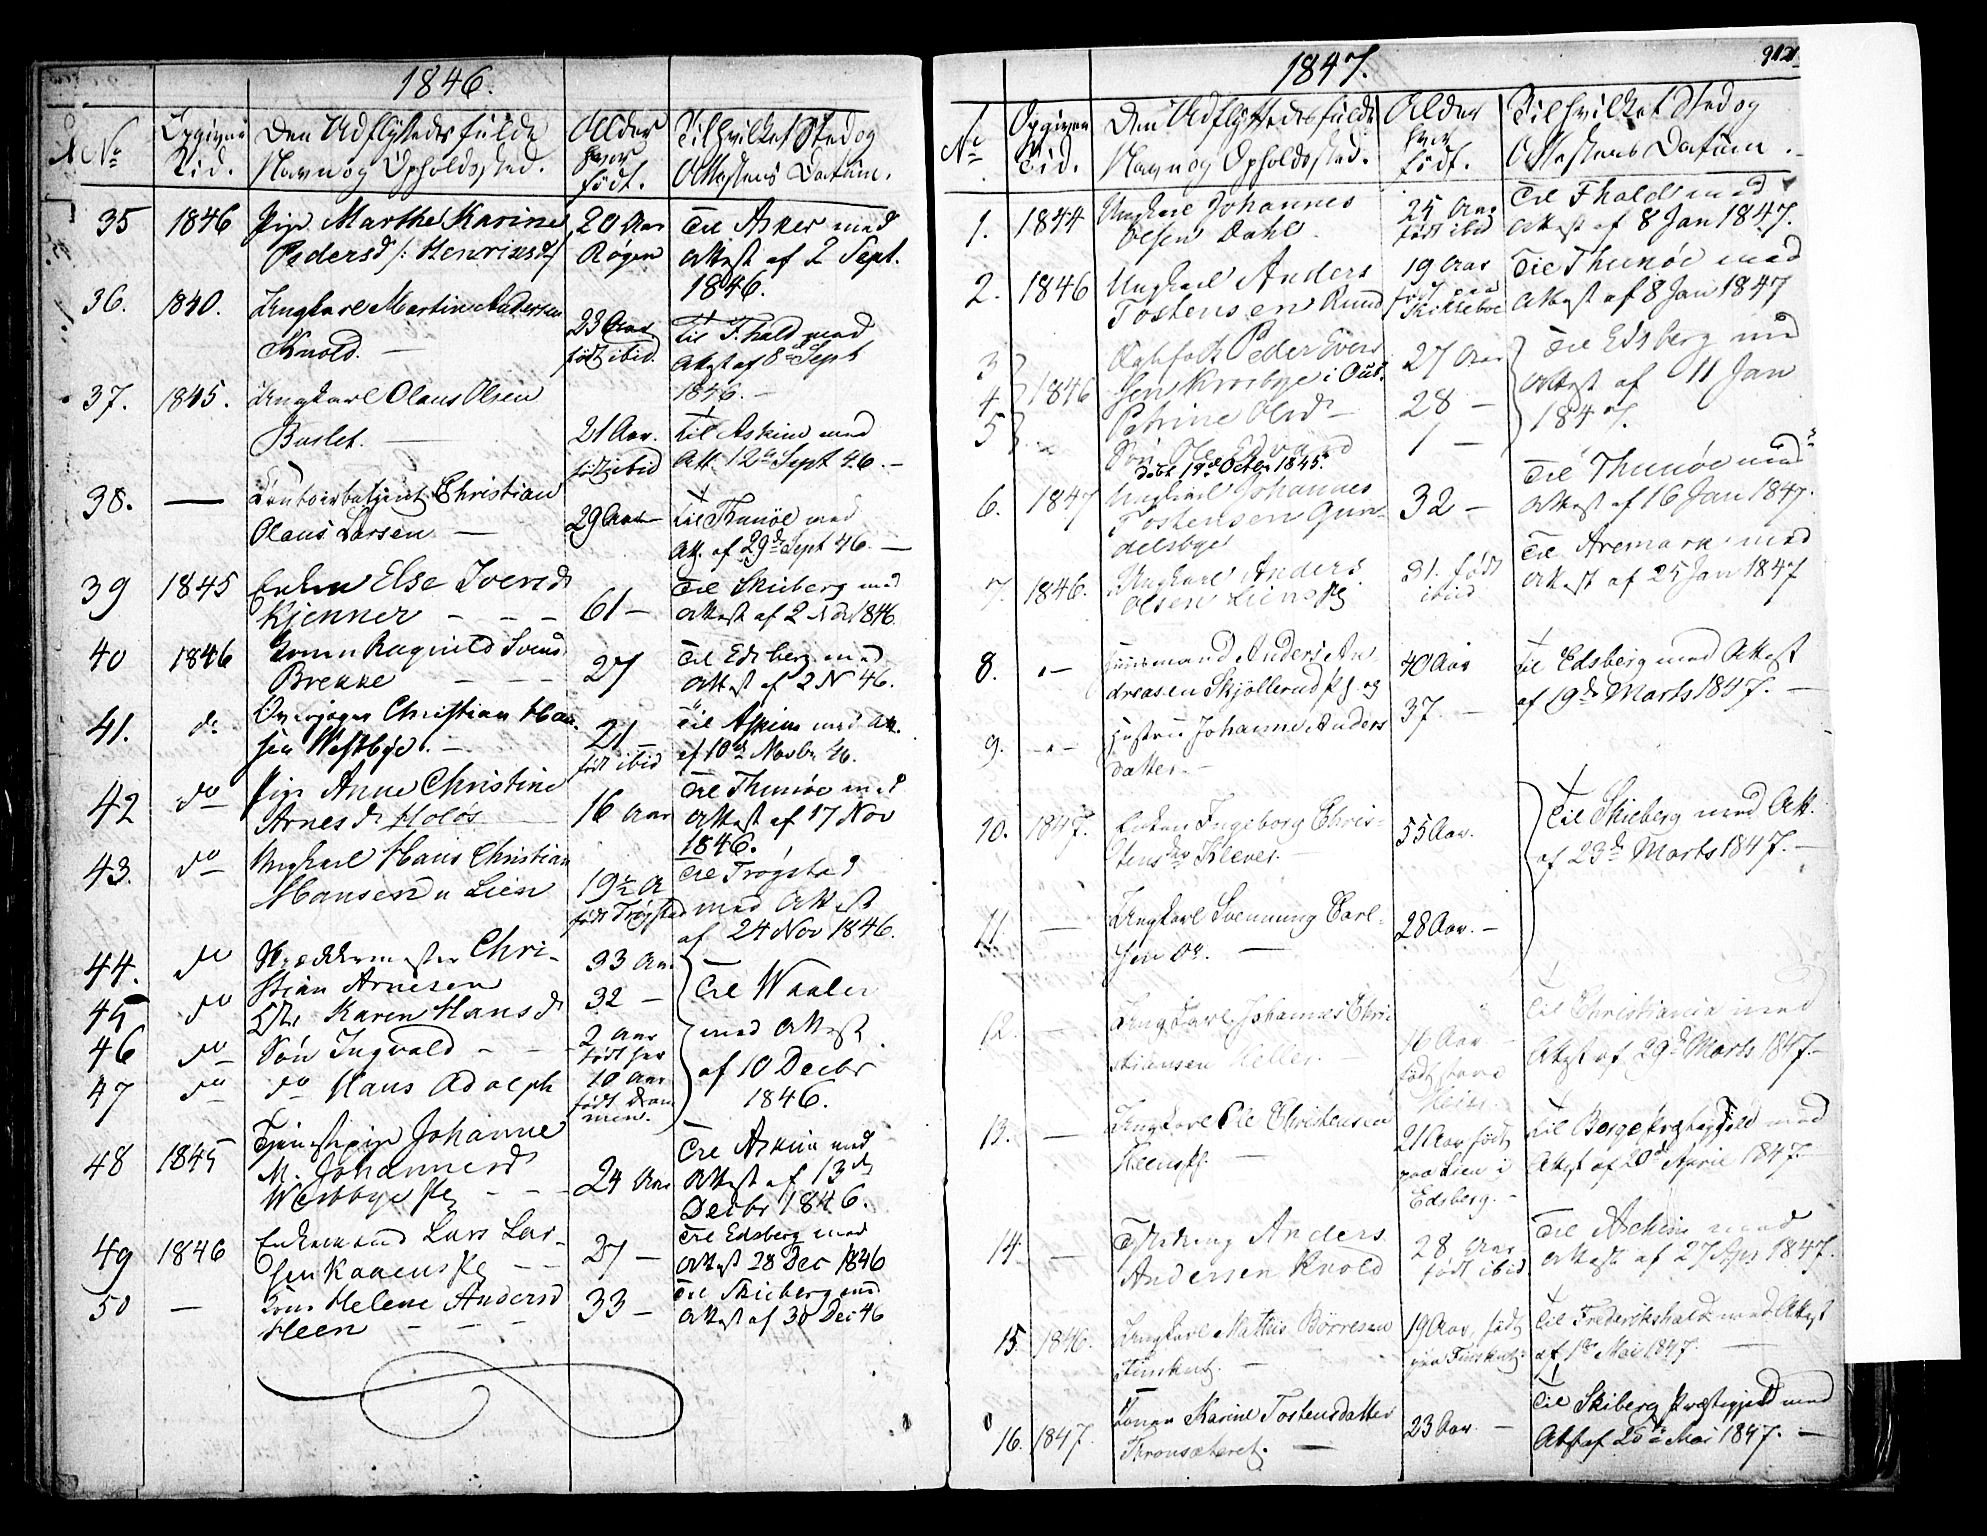 1846.
No
Opgivne Tid.
Den Udflyttedes fulde Navn og Opholdssted.
Alder hvor født.
Til hvilket Sted og Attestens Datum.
35 1846 Pige Marthe Karine 20 Aar Til Asker med
Pedersd /: Henriksd Røgen Attest af 2 Sept.
1846.
36. 1840. Ungkarl Martin Andersen 23 Aar Til F.hald med
Knold. — født ibid. Attest af 8de Sept
1846. —
37. 1845. Ungkarl Olaus Olsen 21 Aar. Til Askim med
Buslet. — født ibid Att. 12te Sept 46. —
38. — Contoirbetjent Christian 29 Aar Til Thunøe med
Olaus Larsen — Att. af 29de Sept 46. —
39 1845 Enken Else Iversd 61 — Til Skieberg med
Kjenner — — — Attest af 2 Nov 1846.
40 1846 Konen Ragnild Svends 27 Til Edsberg med
Brekke — — — Attest af 2 N 46.
41. do Christian Han- 21 — Til Askim med Att.
sen Westbye. — født ibid af 10de Novbr 46.
42 do Pige Anne Christine 16 Aar Til Thunøe med
Arnesdr Holøs Attest af 17 Nov
1846.
43. do Ungkarl Hans Christian 19½ A Til Trøgstad
Hansen u Lien født Trøgstad med Attest
af 24 Nov 1846.
44. do Skræddermester Chri- 33 Aar Til Waaler
stian Arnesen
45 do Karen Hansd 32 — med Attest
46 do Søn Ingvald — — 2 Aar født her af 10 Decbr
47 do do Hans Adolph 10 Aar født Drammen. 1846.
48 1845 Tjenestepige Johanne 24 Aar Til Askim med
M. Johannesd Attest af 13de
Westbye — — Decbr 1846.
49 1846 Enkemand Lars Lar- 27 — Til Edsberg med
sen — — Attest 28 Dec 1846
50 — Kone Helene Andersd 33 — Til Skieberg med
Heen — — — Attest af 30 Dec 46
1847.
No
Opgivne Tid.
Den Udflyttedes fulde Navn og Opholdssted.
Alder hvor født.
Til hvilket Sted og Attestens Datum.
1. 1844 Ungkarl Johannes 25 Aar Til Fhald med
Olsen Dahl. født ibid Attest af 8 Jan 1847.
2. 1846 Ungkarl Anders 19 Aar Til Thunøe med
Tostensen Ruud født Attest af 8 Jan 1847
3 Peder Ever 27 Aar Til Edsberg med
4 1846 sen Krosbye i 28 — Attest af 11 Jan
5 Petrine Olsdr — 1 — 1847.
Søn Ole Edvard
døbt 19de Octbr 1845.
6. 1847 Ungkarl Johannes 32 — Til Thunøe med
Tostensen Gun- Attest af 16 Jan 1847.
delsbye
7. 1846. Ungkarl Anders 31. født Til Aremark med
Olsen ibid Attest af 25 Jan 1847
8. — Huusmand Anders An- 40 Aar Til Edsberg med Attest
dreasen og af 19de Marts 1847. —
9. — Hustru Johanne Anders 37. —
datter. —
10. 1847. Enken Ingeborg Chris- 55 Aar. Til Skieberg med Att.
tensdr Klever. — af 23de Marts 1847. —
11. — Ungkarl Svenning Carl- 28 Aar. —
sen —
12. — Ungkarl Johannes Chri- 16 Aar — Til Christiania med
stiansen født Attest af 29de Marts 1847. —
13. — Ungkarl Ole Christensen 21 Aar født Til Borge Præstegjeld med
paa Lien i Attest af 20de April 1847. —
Edsberg. —
14. — Anders 28 Aar Til Askim med
Andersen Knold født ibid Attest af 27 Apr 1847.
15. 1846. Ungkarl Mathis Børresen 19 Aar, født Til Frederikshald med Attest
af 1ste Mai 1847. —
16. 1847. Konen Karine Tostensdatter 23 Aar — Til Skiberg Præstegjeld med
— Att af 25de Mai 1847. —